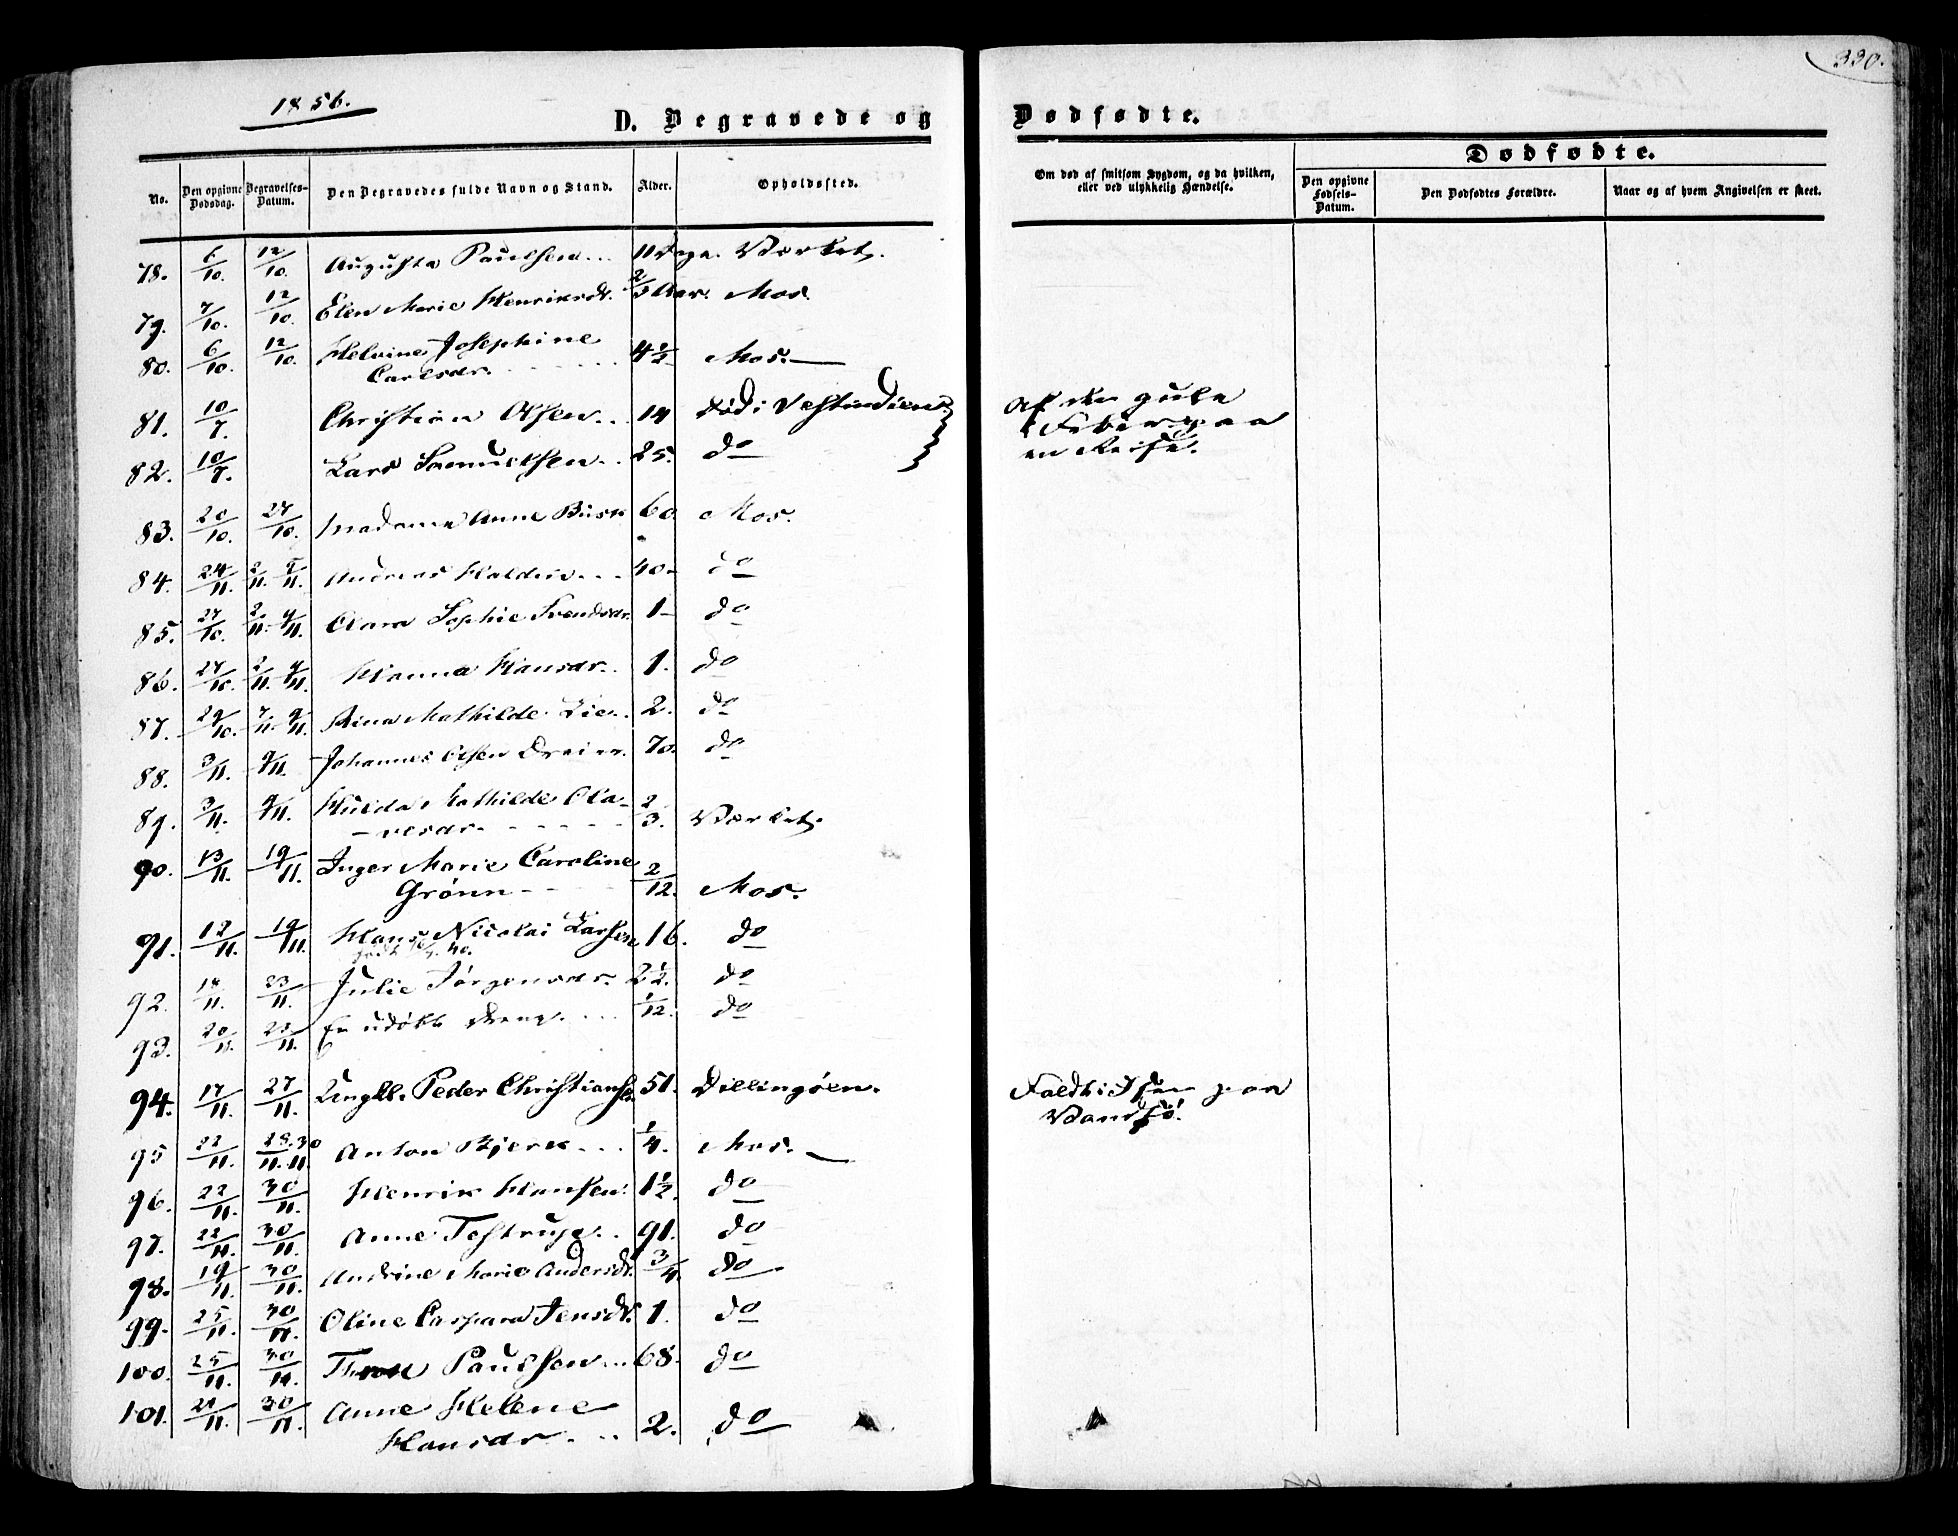 330.
1856.
D. Begravede og Dødfødte.
No.
Den opgivne Dødsdag.
Begravelses-Datum.
Den Begravedes fulde Navn og Stand.
Alder.
Opholdssted.
Om død af smitsom Sygdom, og da hvilken, eller ved ulykkelig Hændelse.
Dødfødte.
Den opgivne Fødsels-Datum.
Den Dødfødtes Forældre.
Naar og af hvem Angivelsen er skeet.
78. 6/10. 12/10. Augusta Paulsen... 11 Dage. Værket.
79. 7/10. 12/10. Elen Marie Henriksdr. 2/3 Aar. Mos.
80. 6/10. 12/10. Helvine Josephine
Carlsdr. 4 1/2 Mos.
81. 10/7. Christian Olsen... 19 død i Vestindien. af den gule
Feber paa
82. 10/7. Lars Samuelsen.. 25. do en Reise.
83. 20/10. 27/10. Madame Anne Busk 60 Mos.
84. 24/11. 2/11. 9/11. Andreas Halden... 40- do
85. 27/10. 2/11. 9/11. Clara Sophie Svendsdr. 1- do
86. 27/10. 2/11. 9/11. Hanna Hansdr.. 1. do
87. 29/10. 7/11. 9/11. Rina Mathilde Lie.. 2. do
88. 3/11. 9/11. Johannes Olsen Dreier. 70. do
89. 3/11. 9/11. Hulda Mathilde Ola-
-vesdr. 2/3. Værket.
90. 13/11. 19/11. Inger Marie Caroline
Grönn 2/12. Mos.
91. 12/11. 19/11. Hans Nicolai Larsen 16. do
92. 18/11. 23/11. Julie Jörgensdr. 2 1/2. do
93. 20/11. 23/11. En udöbt Dreng. ... 1/12. do
94. 17/11. 27/11. Ungkl. Peder Christians. 51. Dillingöen. Faldt i Isen paa
Vandsö.
95 22/11. 28. 30/11. 11. Anton Bjerk... 1/4. Mos.
96. 22/11. 30/11. Henrik Hansen. 1 1/2. do
97. 22/11. 30/11. Anne Tostrup.. 91. do
98. 19/11. 30/11. Andrine Marie Andersdr. 3/4. do
99. 25/11. 30/11. Oline Caspara Jensdr. 1. do
100. 25/11. 30/11. Paulsen... 68. do
101. 21/11. 30/11. Anne Helene
Hansdr. .. 2. do